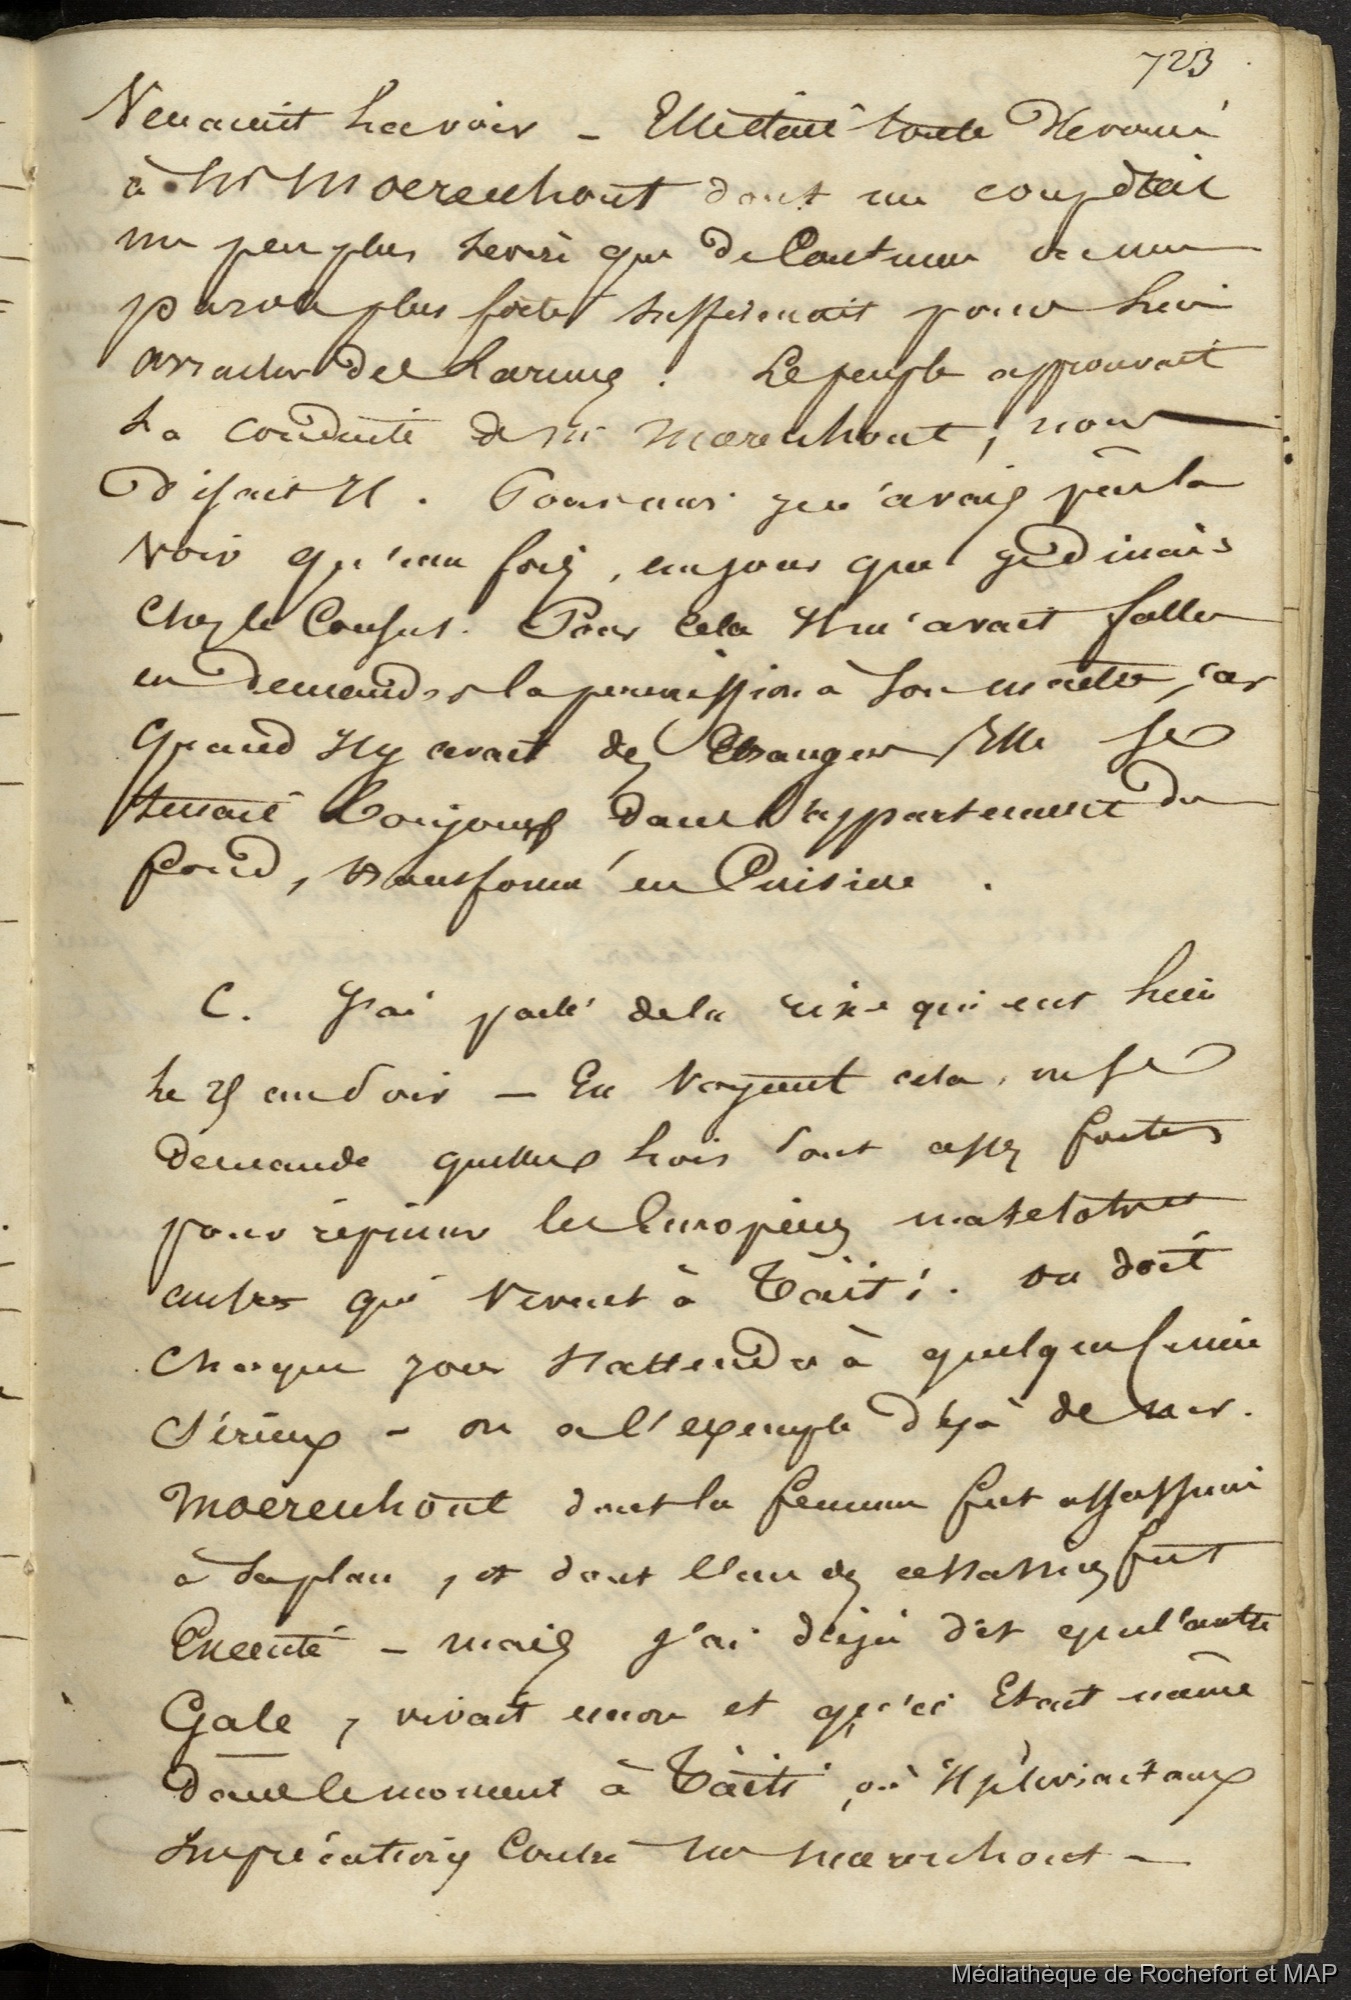 723
Venaient La voir – Elle était toute Devouée
à Mr Moerenhout dont un coup d'œil
un peu plus severe que De Coutume ou une
parole plus forte suffisait pour Lui
arracher des Larmes. Le peuple approuvait
La conduite de Mr Moerenhout, nous
Disait Il. Pour moi je n'avais pû la
Voir qu'une fois, un jour que je dinais
Chez le Consul. Pour Cela Il m'avait fallu
en Demander la permission à Son maître, car
Quand Il y avait des Etrangers Elle se
tenait Toujours dans l'appartement du
fond, transformé en Cuisine.
C. J'ai parlé de la rixe qui eut Lieu
Le 25 au Soir – En Voyant cela, on se
demande quelles Lois sont assez fortes
pour réprimer les Européens matelots et
autres qui Vivent à Taïti. on doit
Chaque jour s'attendre à quelque
Sérieux – on a l'exemple déjà de Mr.
Moerenhout dont la femme fut assassinée
à Sa place, et dont l'un des assassins fut
Executé – mais j'ai déjà dit que l'autre
Gale, vivait encore et qu'il Etait même
dans le moment à Taïti, où Il
Imprécations Contre Mr Moerenhout –
Médiathèque de Rochefort et MAP